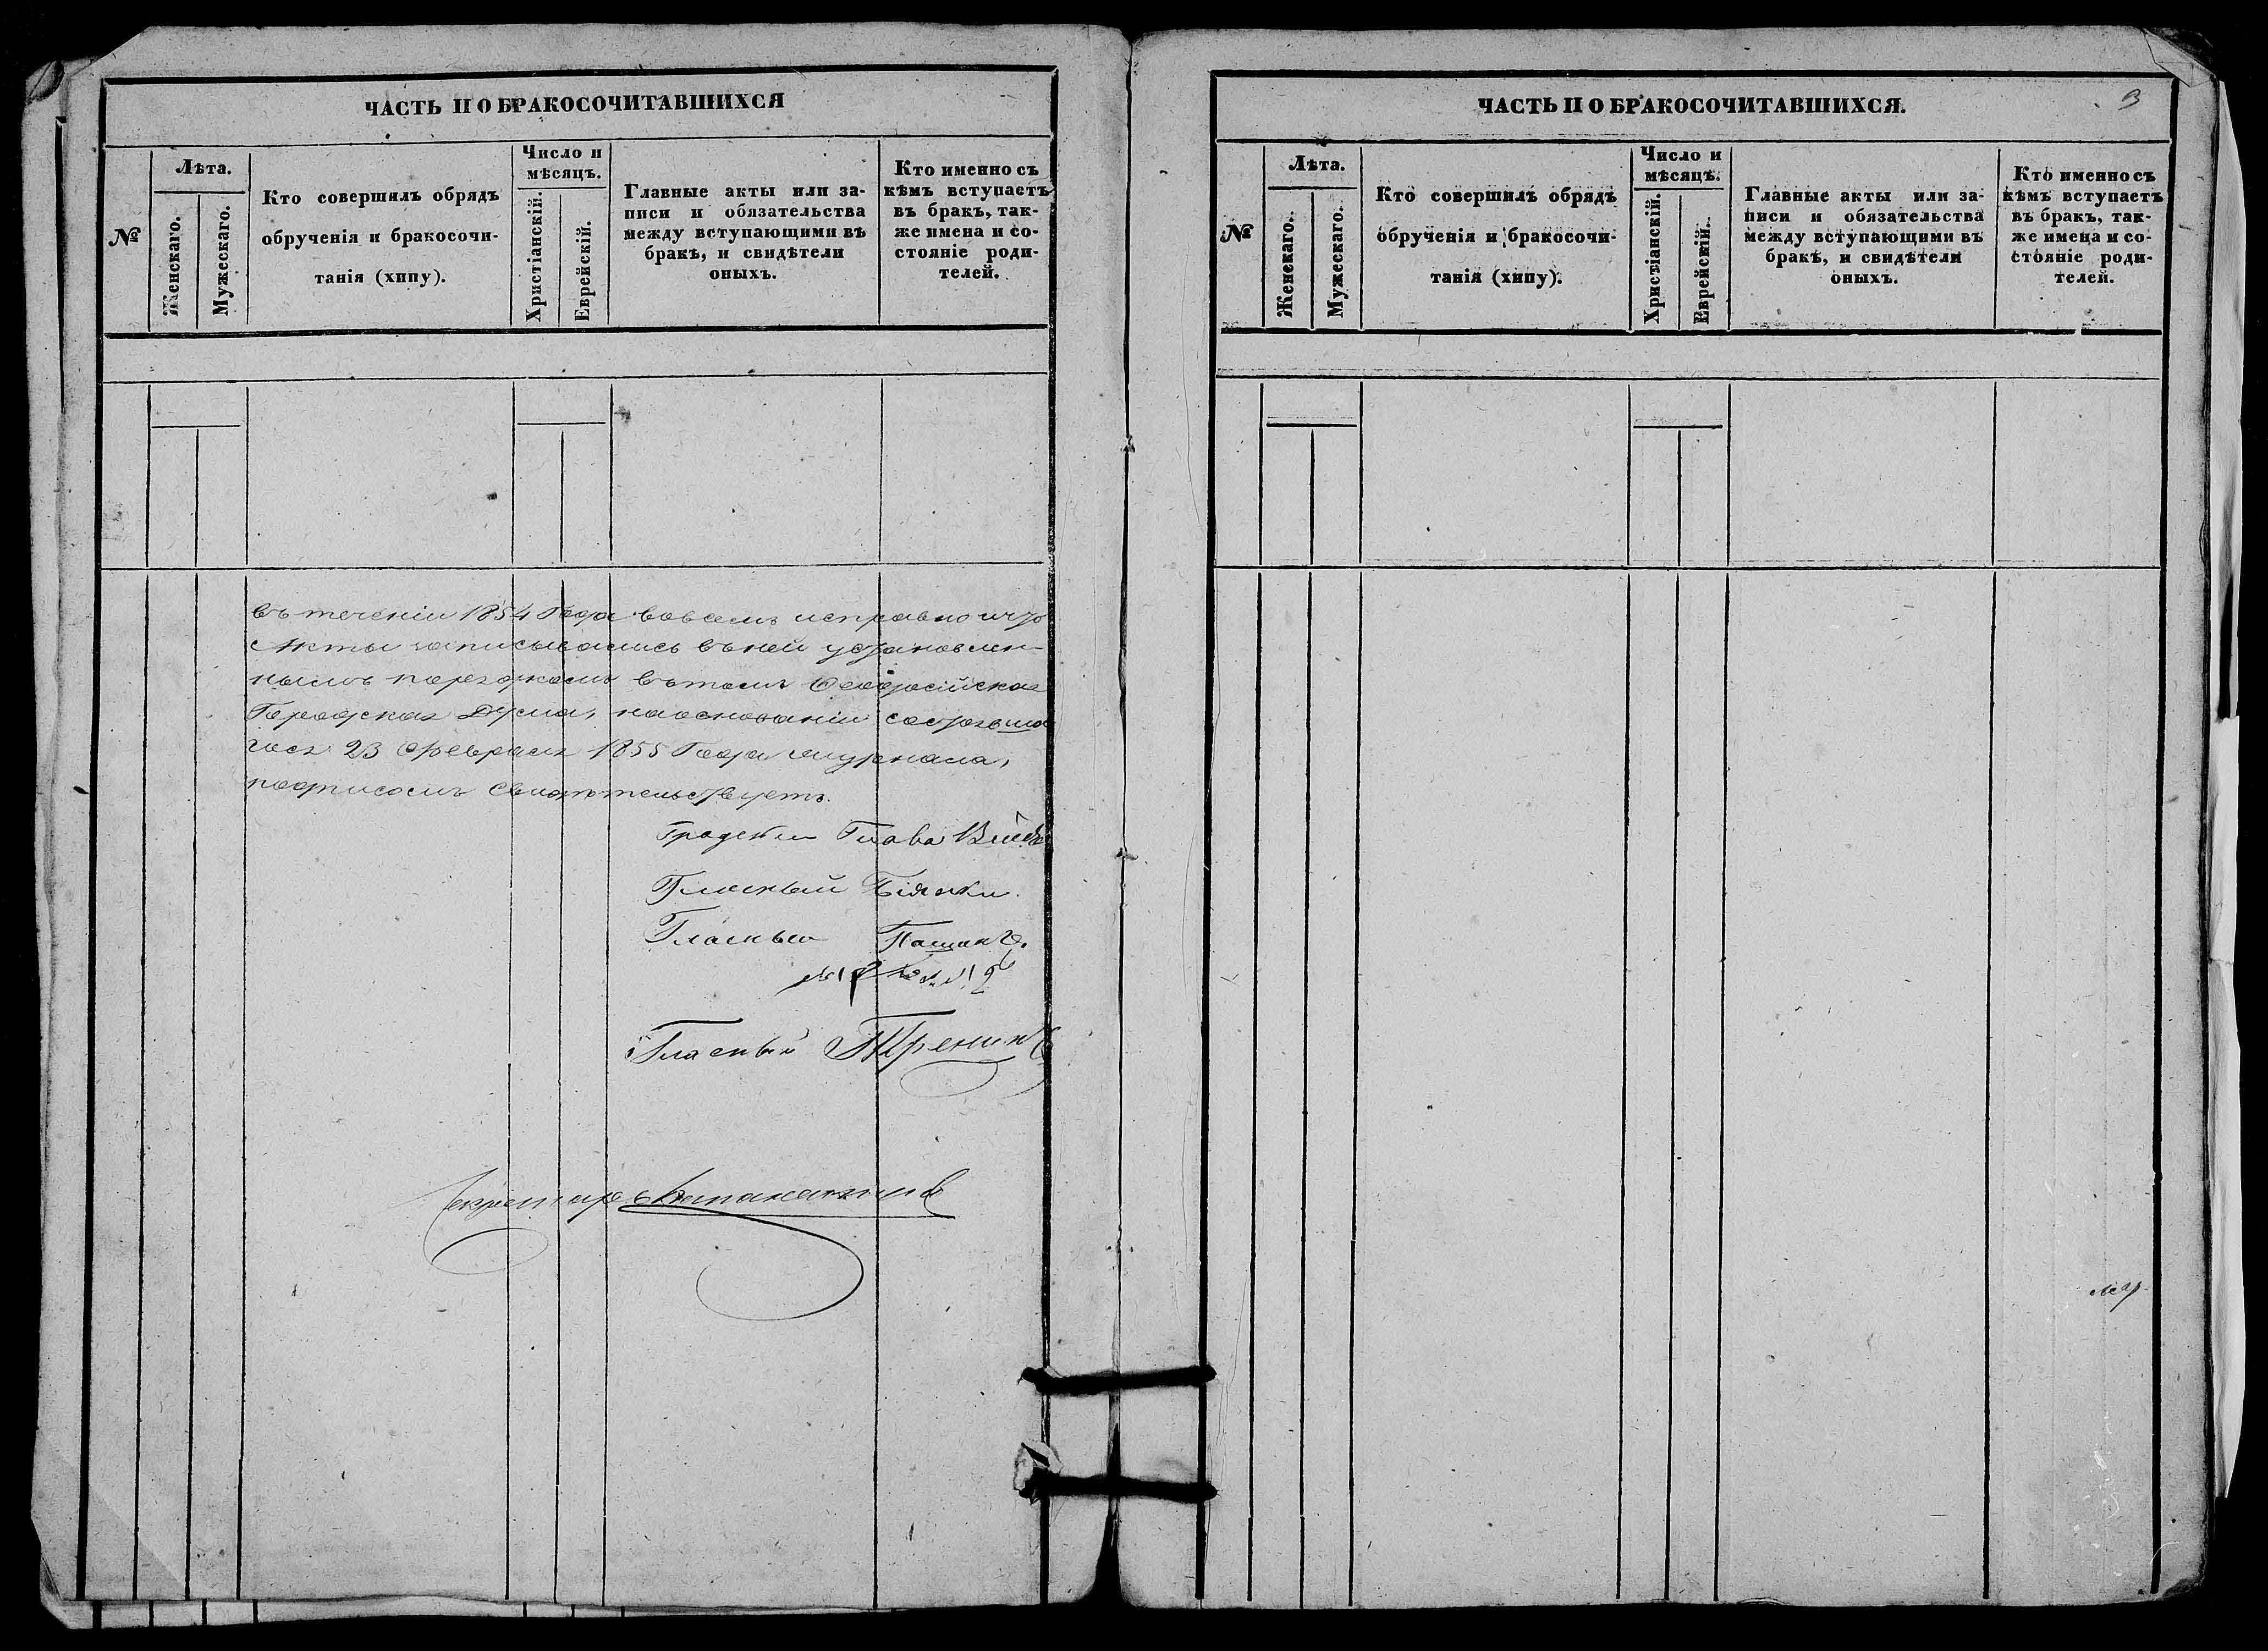 ЧАСТЬ II О БРАКОСОЧИТАВШИХСЯ
№
Лѣта.
Женскаго.
Мужескаго.
Кто совершилъ обрядъ
обрученія и бракосочи-
танія (хипу).
Число и
мѣсяцъ.
Христіанскій.
Еврейскій.
Главные акты или за-
писи и обязательства
между вступающими въ
бракъ, и свидѣтели
оныхъ.
Кто именно съ
кѣмъ вступаетъ
въ бракъ, так-
же имена и со-
стояніе роди-
телей.
въ теченіи 1854 Года вовсемъ исправно что
Акты записывались въ ней установлен-
нымъ порядкомъ въ томъ Ѳеодосійская
Городская Дума, на основаніи состоявша
гося 23 Февраля 1855 Года журнала,
подписомъ свидѣтельствуетъ.
Градскій Глава
Гласный Біянки
Гласный
Гласный
Секретарь
ЧАСТЬ II О БРАКОСОЧИТАВШИХСЯ.
3
№
Лѣта.
Женскаго.
Мужескаго.
Кто совершилъ обрядъ
обрученія и бракосочи-
танія (хипу).
Число и
мѣсяцъ.
Христіанскій.
Еврейскій.
Главные акты или за-
писи и обязательства
между вступающими въ
бракъ, и свидѣтели
оныхъ.
Кто именно съ
кѣмъ вступаетъ
въ бракъ, так-
же имена и со-
стояніе роди-
телей.